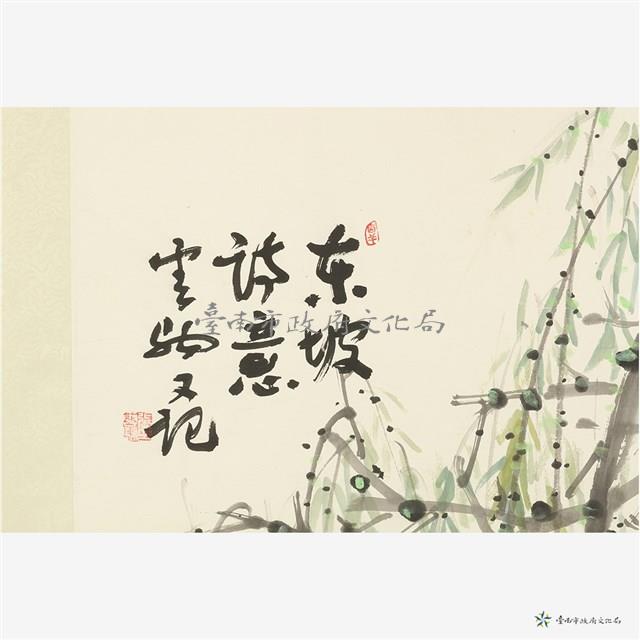 东坡
诗意
云物又记
臺南市政府文化局
臺南市政府文化局